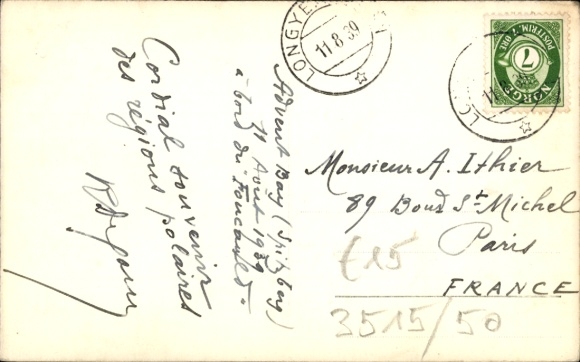 Advent Bay (Spitzberg)
11 Août 1939
à bord du Foucauld.
Cordial souvenir
des régions polaires
LONGYE
11.8.39
NORGE
POSTFRIM. 7 ØRE
7
Monsieur A. Ithier
89 Boud St-Michel
Paris
FRANCE
£15
3515/50